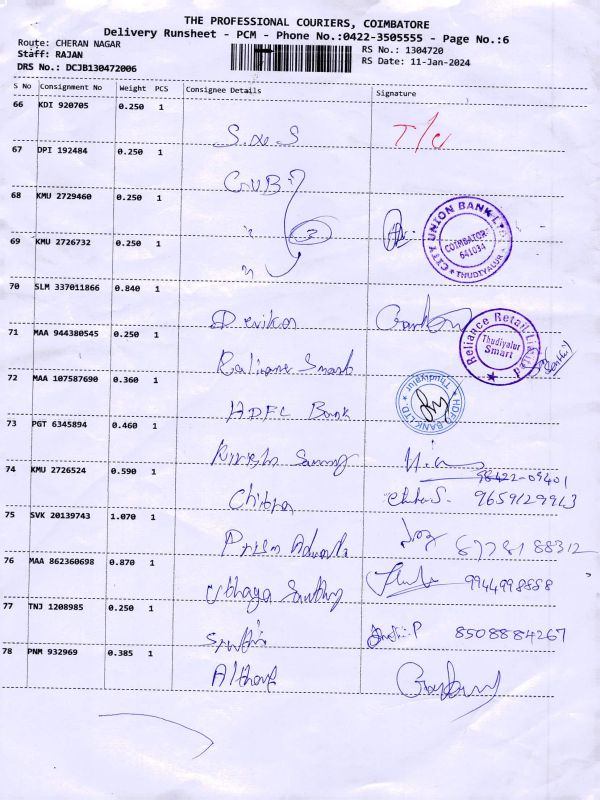 THE PROFESSIONAL COURIERS, COIMBATORE
Delivery Runsheet - PCM - Phone No.:0422-3505555 - Page No.:6
Route: CHERAN NAGAR
RS No.: 1304720
Staff: RAJAN
RS Date: 11-Jan-2024
DRS No.: DCJB130472006
S No Consignment No Weight PCS Consignee Details Signature
66 KDI 920705 0.250 1
T/C
67 DPI 192484 0.250 1
CUB
68 KMU 2729460 0.250 1
CITY UNION BANK LTD
COIMBATORE-
641034
THUDIYALUR
69 KMU 2726732 0.250 1
70 SLM 337011866 0.840 1
Devika
71 MAA 944380545 0.250 1
Reliance Smart
Reliance Retail Limited
Thudiyalur
Smart
72 MAA 107587690 0.360 1
HDFC Bank
HDFC BANK LTD. Thudiyalur
73 PGT 6345894 0.460 1
98422-09401
74 KMU 2726524 0.590 1
Chitra 9659129913
75 SVK 20139743 1.070 1
Prism 8778188312
76 MAA 862360698 0.870 1
Uthaya 9944998888
77 TNJ 1208985 0.250 1
8508884267
78 PNM 932969 0.385 1